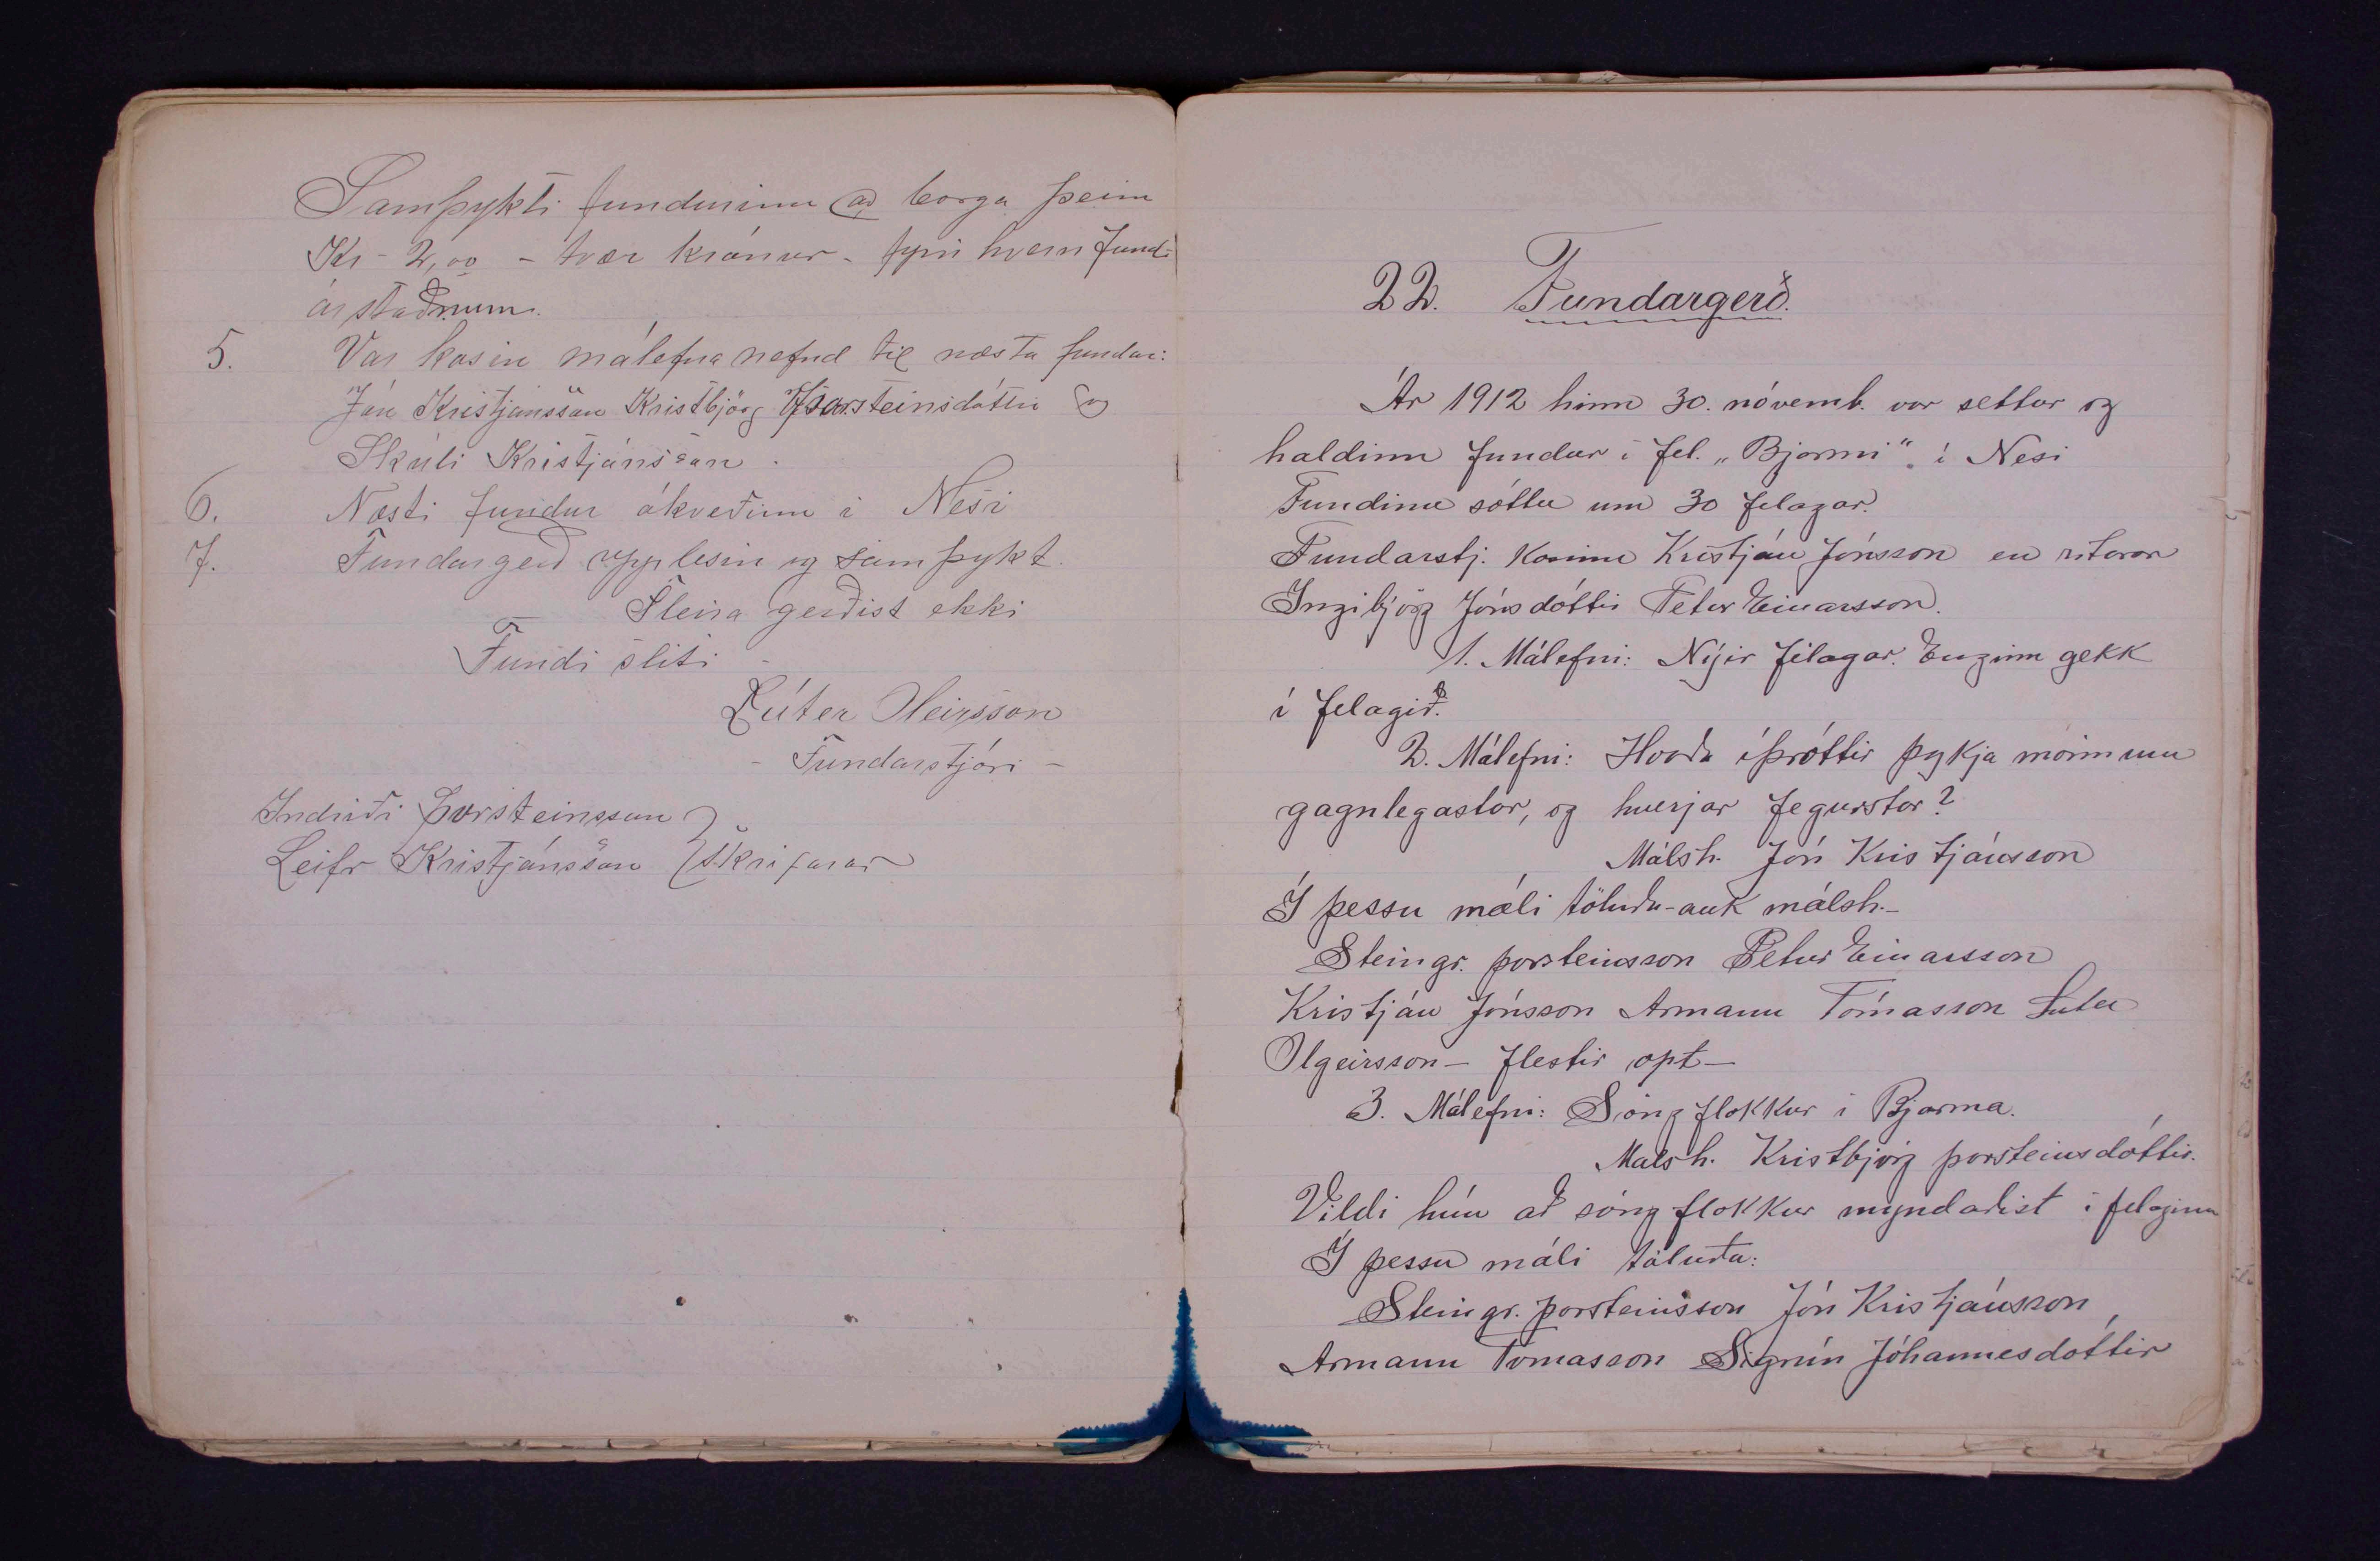 Samþykti fundurinn að borga þeim
Kr - 2,00 - tvær krónur - fyrir hvern fund-
arstaðnum.
5. Var kosin málefna nefnd til næsta fundar:
Jón Kristjánsson Kristbjörg Þorsteinsdóttir og
Skúli Kristjánsson.
6. Næsti fundur ákveðinn i Nesi
7. Fundargerð upplesin og samþykt.
Fleira gerðist ekki
Fundi sliti -
Lúter Oleirsson
- Fundarstjóri -
Indriði Þorsteinsson
Leifr Kristjánsson } Skrifarar
22. Fundargerð.
Ár 1912 hinn 30. nóvemb. var settur og
haldinn fundur i fel. „Bjarmi“. i Nesi
Fundinn sóttu um 30 felagar.
Fundarstj. kosinn Kristján Jónsson en ritarar
Ingibjörg Jónsdóttir Petur Einarsson.
1. Málefni: Nýir félagar. Enginn gekk
í felagið.
2. Málefni: Hvaða íþróttir þykja mönnum
gagnlegastar, og hverjar fegurstar?
Málsh. Jón Kristjánsson
Í þessu máli töluðu - auk málsh. -
Steingr. þorsteinsson Petur Einarsson
Kristján Jónsson Armann Tómasson Luter
Olgeirsson - flestir opt -
3. Málefni: Söngflokkur i Bjarma.
Malsh. Kristbjörg þorsteinsdóttir.
Vildi hún að söngflokkur myndaðist i felaginu
Í þessu máli töluðu:
Steingr. þorsteinsson Jón Kristjánsson,
Armann Tomasson Sigrún Jóhannesdóttir